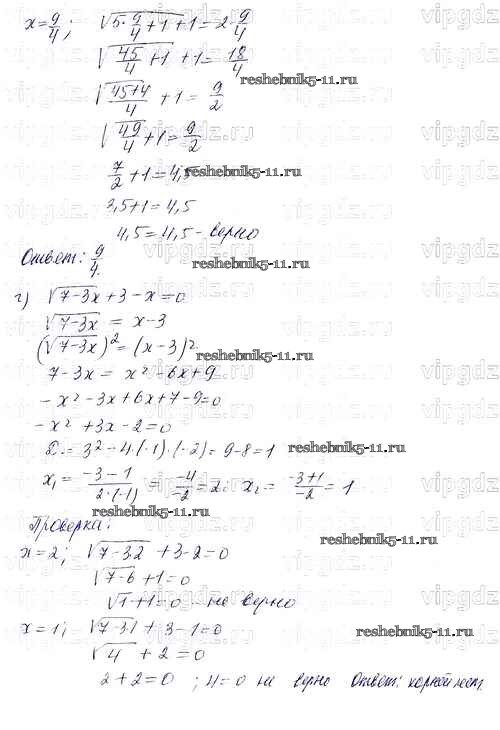 x=9/4; √(5·9/4+1)+1=2·9/4
√(45/4+1)+1=18/4
reshebnik5-11.ru
√((45+4)/4)+1=9/2
√(49/4)+1=9/2
7/2+1=4,5
reshebnik5-11.ru
3,5+1=4,5
4,5=4,5 - верно
Ответ: 9/4.
reshebnik5-11.ru
г) √(7-3x)+3-x=0
√(7-3x) = x-3
(√(7-3x))²=(x-3)²
reshebnik5-11.ru
7-3x = x²-6x+9
-x²-3x+6x+7-9=0
-x²+3x-2=0
D = 3²-4·(-1)·(-2)=9-8=1
reshebnik5-11.ru
x₁=(-3-1)/(2·(-1)) = -4/-2=2. x₂=(-3+1)/-2=1
reshebnik5-11.ru
Проверка:
x=2; √(7-3·2)+3-2=0
reshebnik5-11.ru
√(7-6)+1=0
√1+1=0 - не верно
x=1; √(7-3·1)+3-1=0
reshebnik5-11.ru
√4+2=0
2+2=0; 4=0 не верно Ответ: корней нет.
vipgdz